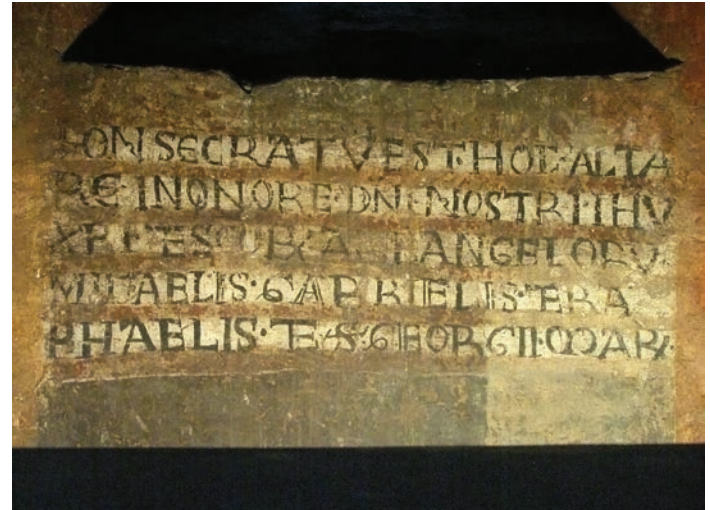 CONSECRATV EST·HOC·ALTA
RE·INONORE·DNI·NOSTRI·IHV
XPI ANGELORV
MICAELIS·GABRIELIS·ERA
PHAELIS·ET·S·GEORGII·MAR